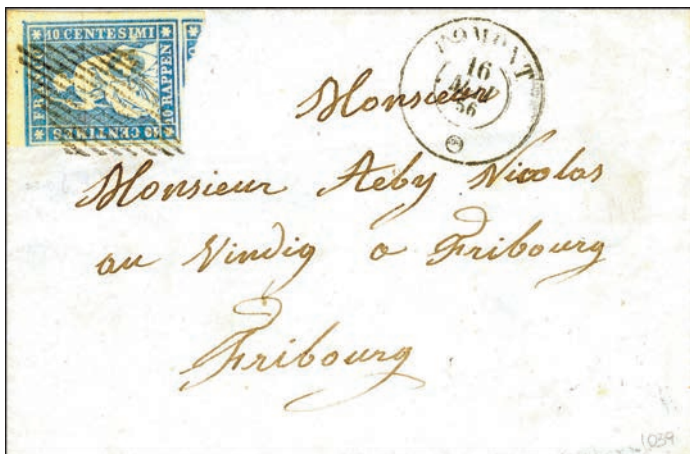 10 CENTESIMI
10 RAPPEN
CENTIMES
FR
ROMONT
16
56
Monsieur
Monsieur Aeby Nicolas
au Vindig a Fribourg
Fribourg
1039